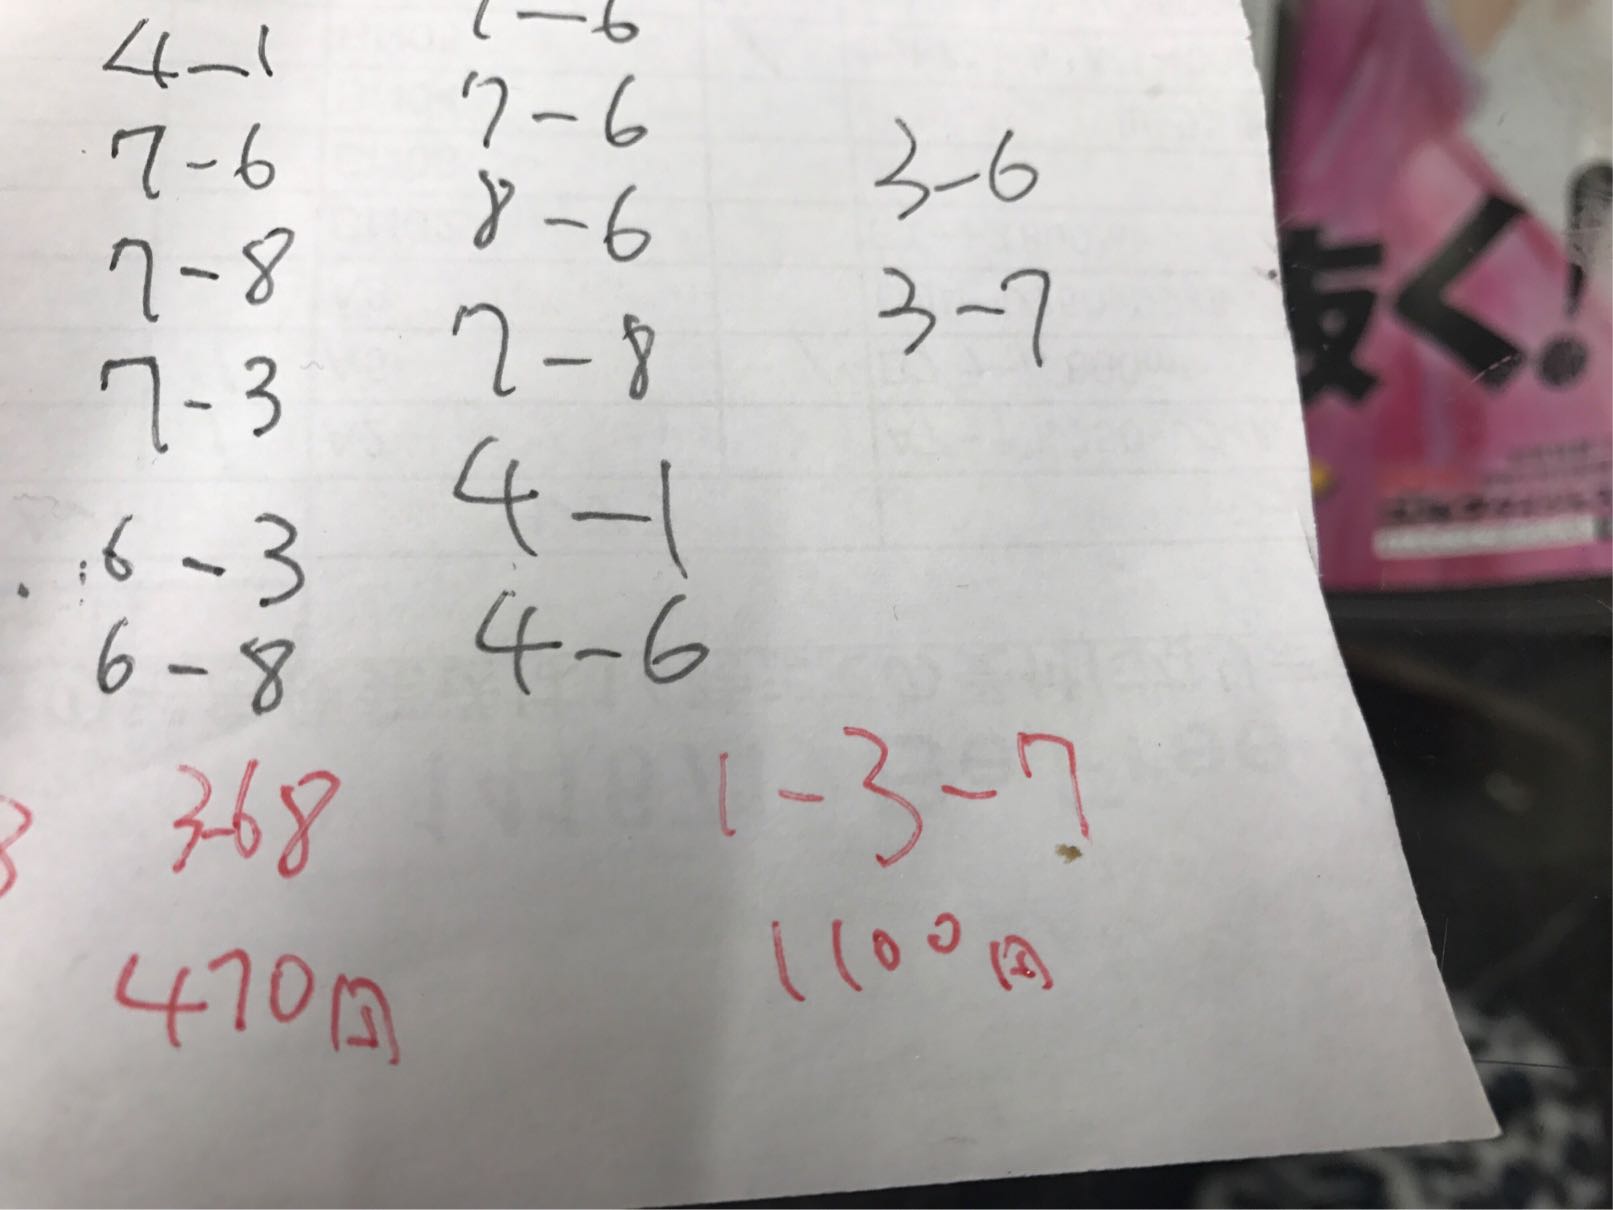 4-1
7-6
7-8
7-3
6-3
6-8
7-6
8-6
7-8
4-1
4-6
3-6
3-7
368
470円
1-3-7
1100円
く!